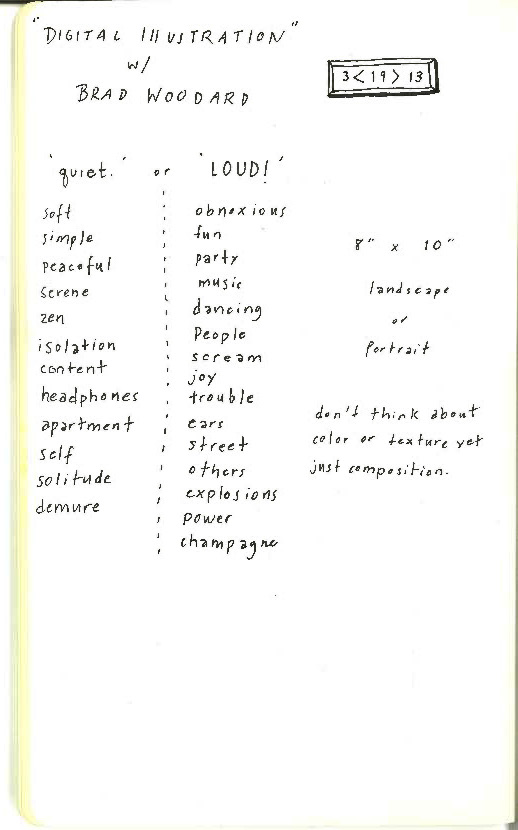 "DIGITAL ILLUSTRATION"
w/
BRAD WOODARD
3<19>13
'quiet.' or 'LOUD!'
soft
simple
peaceful
serene
zen
isolation
content
headphones
apartment
self
solitude
demure
obnoxious
fun
party
music
dancing
People
scream
joy
trouble
ears
street
others
explosions
power
champagne
8" x 10"
landscape
or
portrait
don't think about
color or texture yet
just composition.